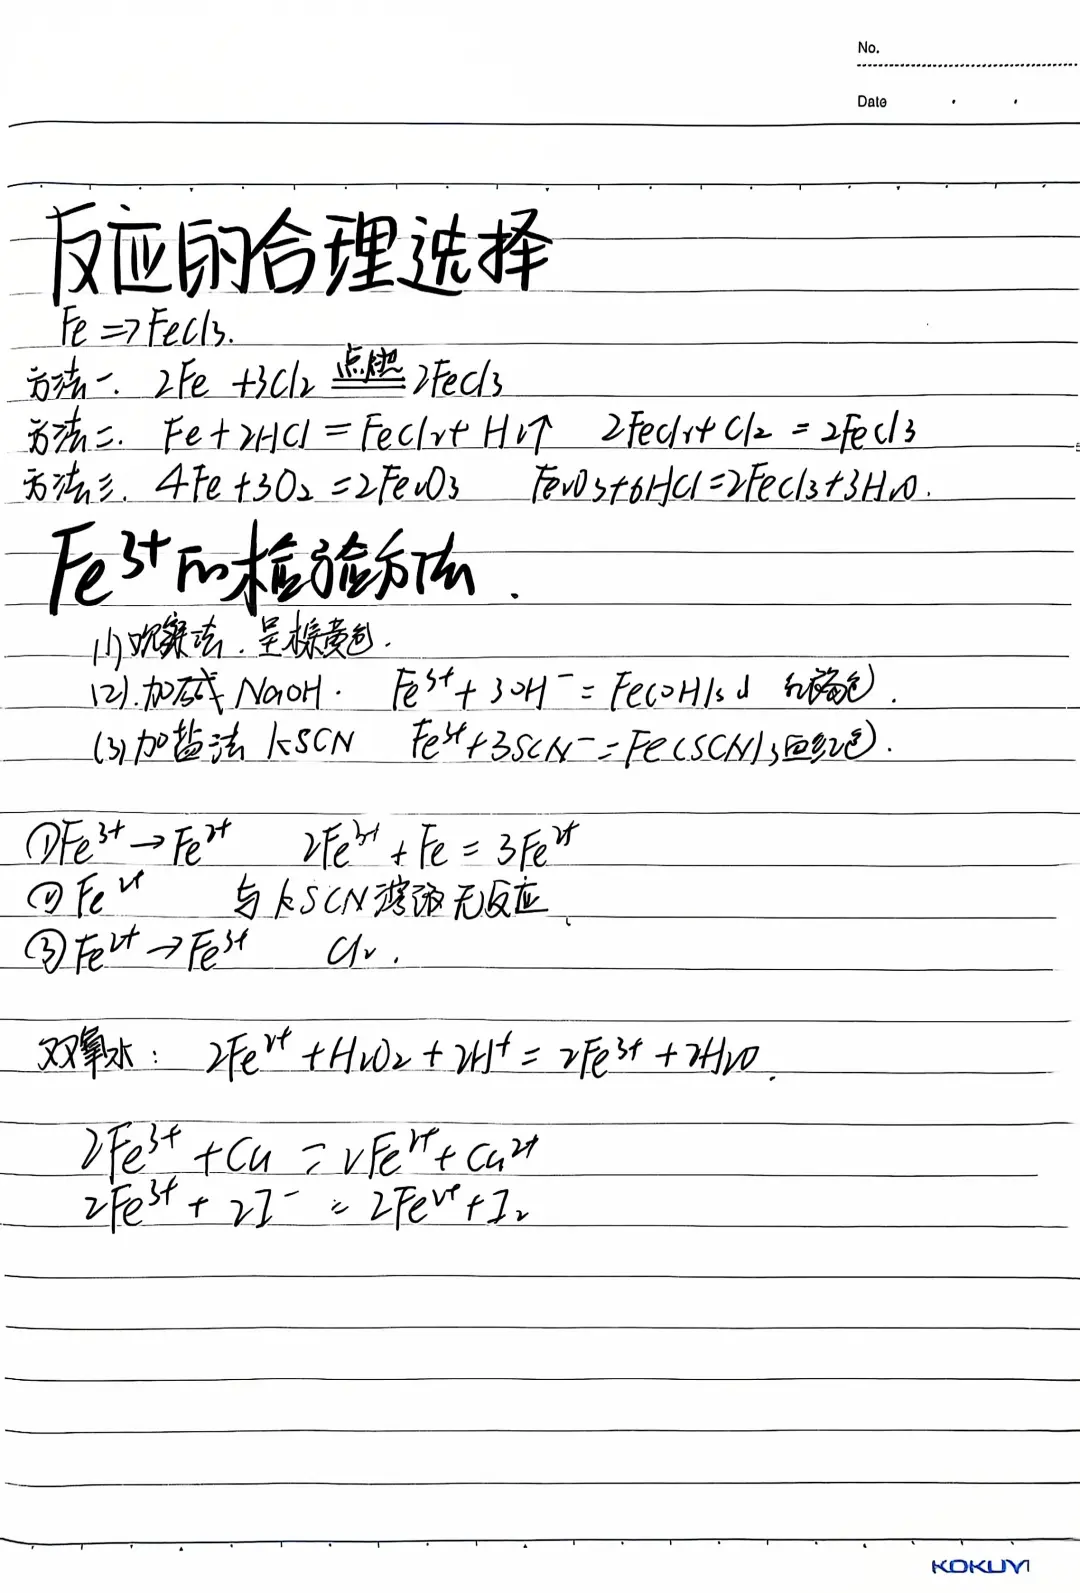 No.
Date
反应的合理选择
Fe => FeCl3.
方法一. 2Fe +3Cl2 点燃 2FeCl3
方法二. Fe+2HCl = FeCl2+ H2↑ 2FeCl2+ Cl2 = 2FeCl3
方法三. 4Fe+3O2=2Fe2O3 Fe2O3+6HCl=2FeCl3+3H2O.
Fe3+的检验方法.
(1)观察法. 呈棕黄色.
(2).加碱 NaOH. Fe3+ + 3OH- = Fe(OH)3↓ 红褐色).
(3)加盐法 KSCN Fe3+ +3SCN- = Fe(SCN)3血红色).
①Fe3+ → Fe2+ 2Fe3+ + Fe = 3Fe2+
② Fe2+ 与 KSCN溶液无反应.
③Fe2+ → Fe3+ Cl2.
双氧水: 2Fe2+ + H2O2 + 2H+ = 2Fe3+ + 2H2O.
2Fe3+ + Cu = 2Fe2+ + Cu2+
2Fe3+ + 2I- = 2Fe2+ + I2
KOKUYO